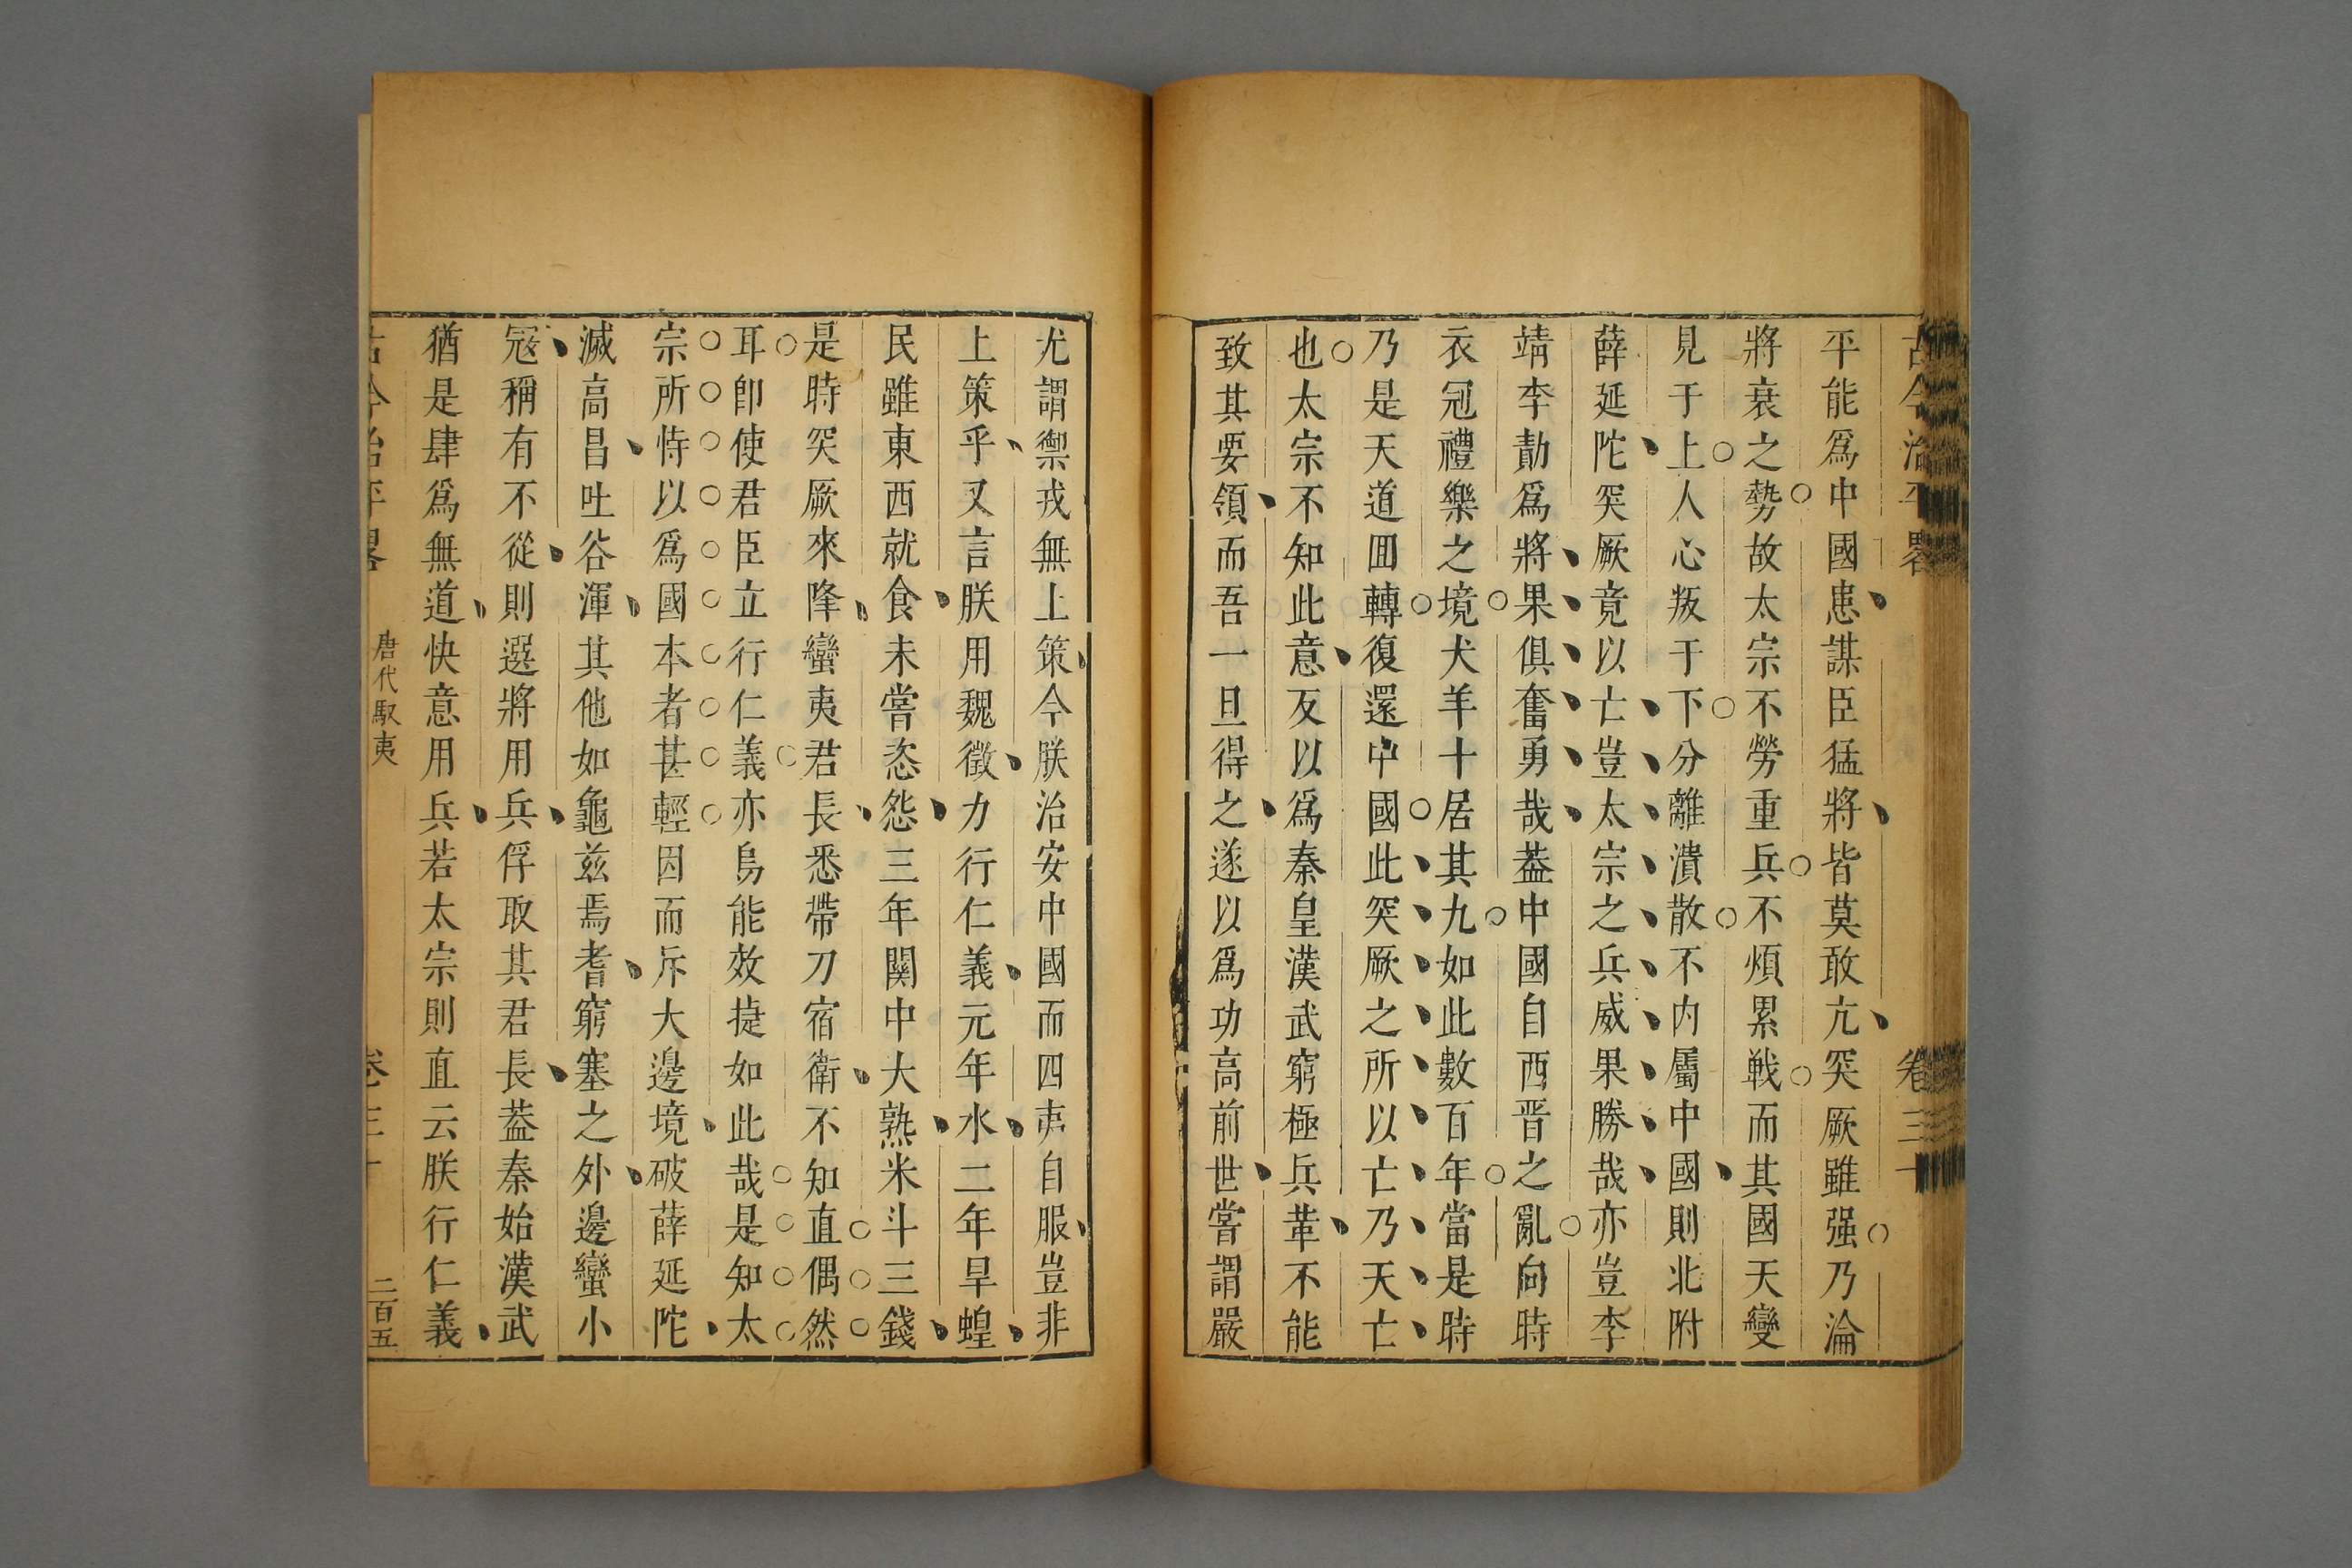 古今治平畧 卷三十
平能爲中國患謀臣猛將皆莫敢亢突厥雖强乃淪
將衰之勢故太宗不勞重兵不煩累戦而其國天變
見于上人心叛于下分離潰散不内屬中國則北附
薛延陀突厥竟以亡豈太宗之兵威果勝哉亦豈李
靖李勣爲將果俱奮勇哉葢中國自西晋之亂向時
衣冠禮樂之境犬羊十居其九如此數百年當是時
乃是天道囬轉復還中國此突厥之所以亡乃天亡
也太宗不知此意反以爲秦皇漢武窮極兵革不能
致其要領而吾一旦得之遂以爲功高前世嘗謂嚴
尤謂禦戎無上策今朕治安中國而四夷自服豈非
上策乎又言朕用魏徵力行仁義元年水二年旱蝗
民雖東西就食未嘗恣怨三年關中大熟米斗三錢
是時突厥來降蠻夷君長悉帶刀宿衛不知直偶然
耳卽使君臣立行仁義亦烏能效捷如此哉是知太
宗所恃以爲國本者甚輕因而斥大邊境破薛延陀
滅高昌吐谷渾其他如龜兹焉耆窮塞之外邊蠻小
寇稱有不從則選將用兵俘取其君長葢秦始漢武
猶是肆爲無道快意用兵若太宗則直云朕行仁義
古今治平畧 唐代馭夷 卷三十 二百五